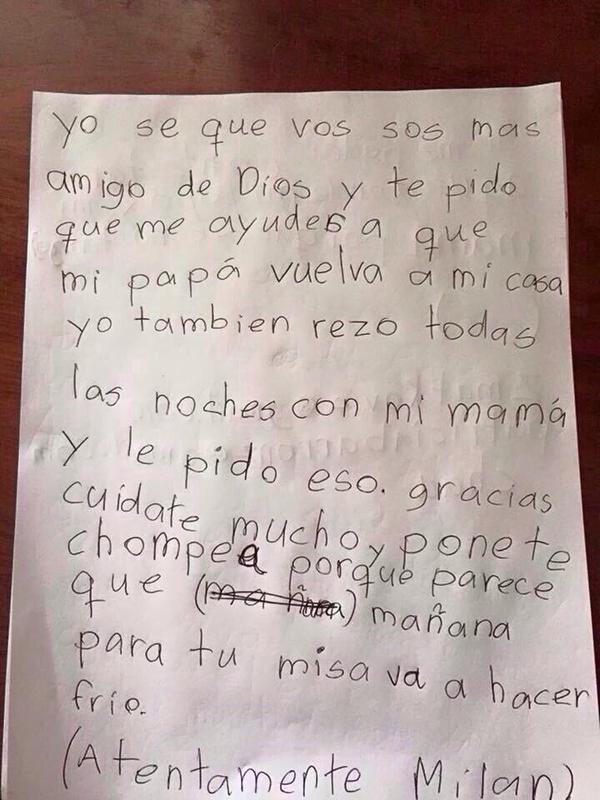 yo se que vos sos mas
amigo de Dios y te pido
que me ayudes a que
mi papá vuelva a mi casa
yo tambien rezo todas
las noches con mi mamá
y le pido eso. gracias
cuídate mucho y ponete
chompea porque parece
que (mañana) mañana
para tu misa va a hacer
frío.
(Atentamente Milan)